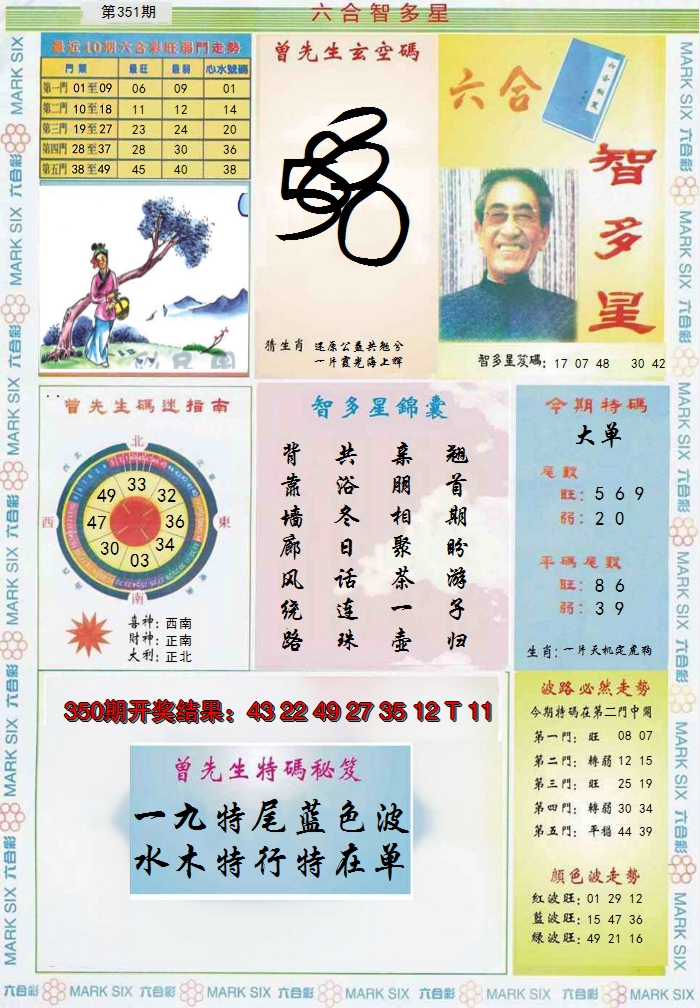 第351期
六合智多星
最近10期六合彩旺弱門走勢
門類 最旺 最弱 心水號碼
第一門 01至09 06 09 01
第二門 10至18 11 12 14
第三門 19至27 23 24 20
第四門 28至37 28 30 36
第五門 38至49 45 40 38
曾先生玄空碼
猜生肖 还原公益共勉兮
一片霞光海上辉
六合
智多星
智多星笈碼: 17 07 48 30 42
曾先生碼迷指南
北
西
東
南
33
32
36
34
03
30
47
49
喜神: 西南
財神: 正南
大利: 正北
智多星錦囊
翘首期盼游子归
亲朋相聚茶一壶
共浴冬日话连珠
背靠墙廊风绕路
今期特碼
大单
尾數
旺: 5 6 9
弱: 2 0
平碼尾數
旺: 8 6
弱: 3 9
生肖: 一片天机定虎狗
350期开奖结果: 43 22 49 27 35 12 T 11
曾先生特碼秘笈
一九特尾蓝色波
水木特行特在单
波路必然走勢
今期特碼在第二門中開
第一門: 旺 08 07
第二門: 轉弱 12 15
第三門: 旺 25 19
第四門: 轉弱 30 34
第五門: 平穩 44 39
顏色波走勢
紅波旺: 01 29 12
藍波旺: 15 47 36
綠波旺: 49 21 16
六合彩 MARK SIX 六合彩 MARK SIX 六合彩 MARK SIX 六合彩 MARK SIX